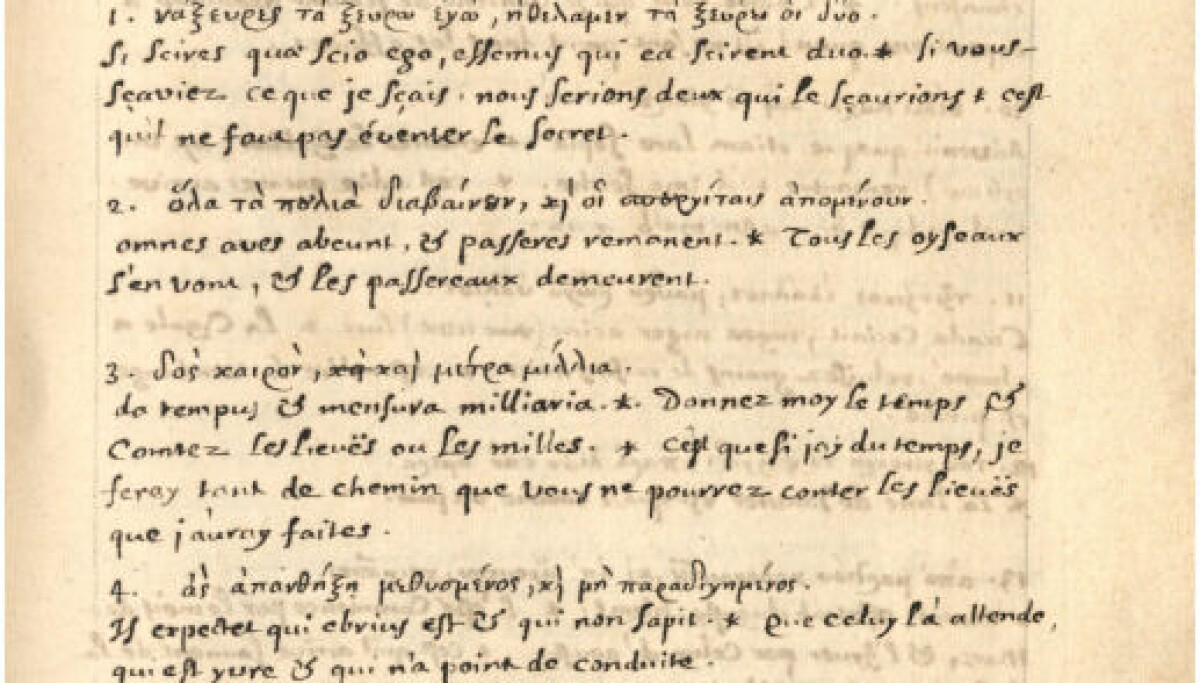 1. νὰ ξευρες τὰ ξευρω ἐγὼ, ἠθελαμεν τὰ ξευρω οἱ δύο.
Si scires quæ scio ego, essemus qui ea scirent duo. * si vous
sçaviez ce que je sçais. nous serions deux qui le sçaurions * c'est
qu'il ne faut pas éventer le secret.
2. ὅλα τὰ πουλιὰ διαβαίνουν, κὶ οἱ ἀπομένουν.
omnes aves abeunt, & passeres remanent. * Tous les oyseaux
s'en vont, & les passereaux demeurent.
3. δος καιρὸν, καὶ μέτρα μίλλια.
da tempus & mensura milliaria. *. Donnez moy le temps &
Comtez les lieuës ou les milles. * C'est que si j'ay du temps, je
feray tant de chemin que vous ne pourrez conter les lieuës
que j'auray faites.
4. ἀς μεθυσμένος, κὶ μὴ
Is expectet qui ebrius est & qui non sapit. * que celuy là attende,
qui est yvre & qui n'a point de conduite.